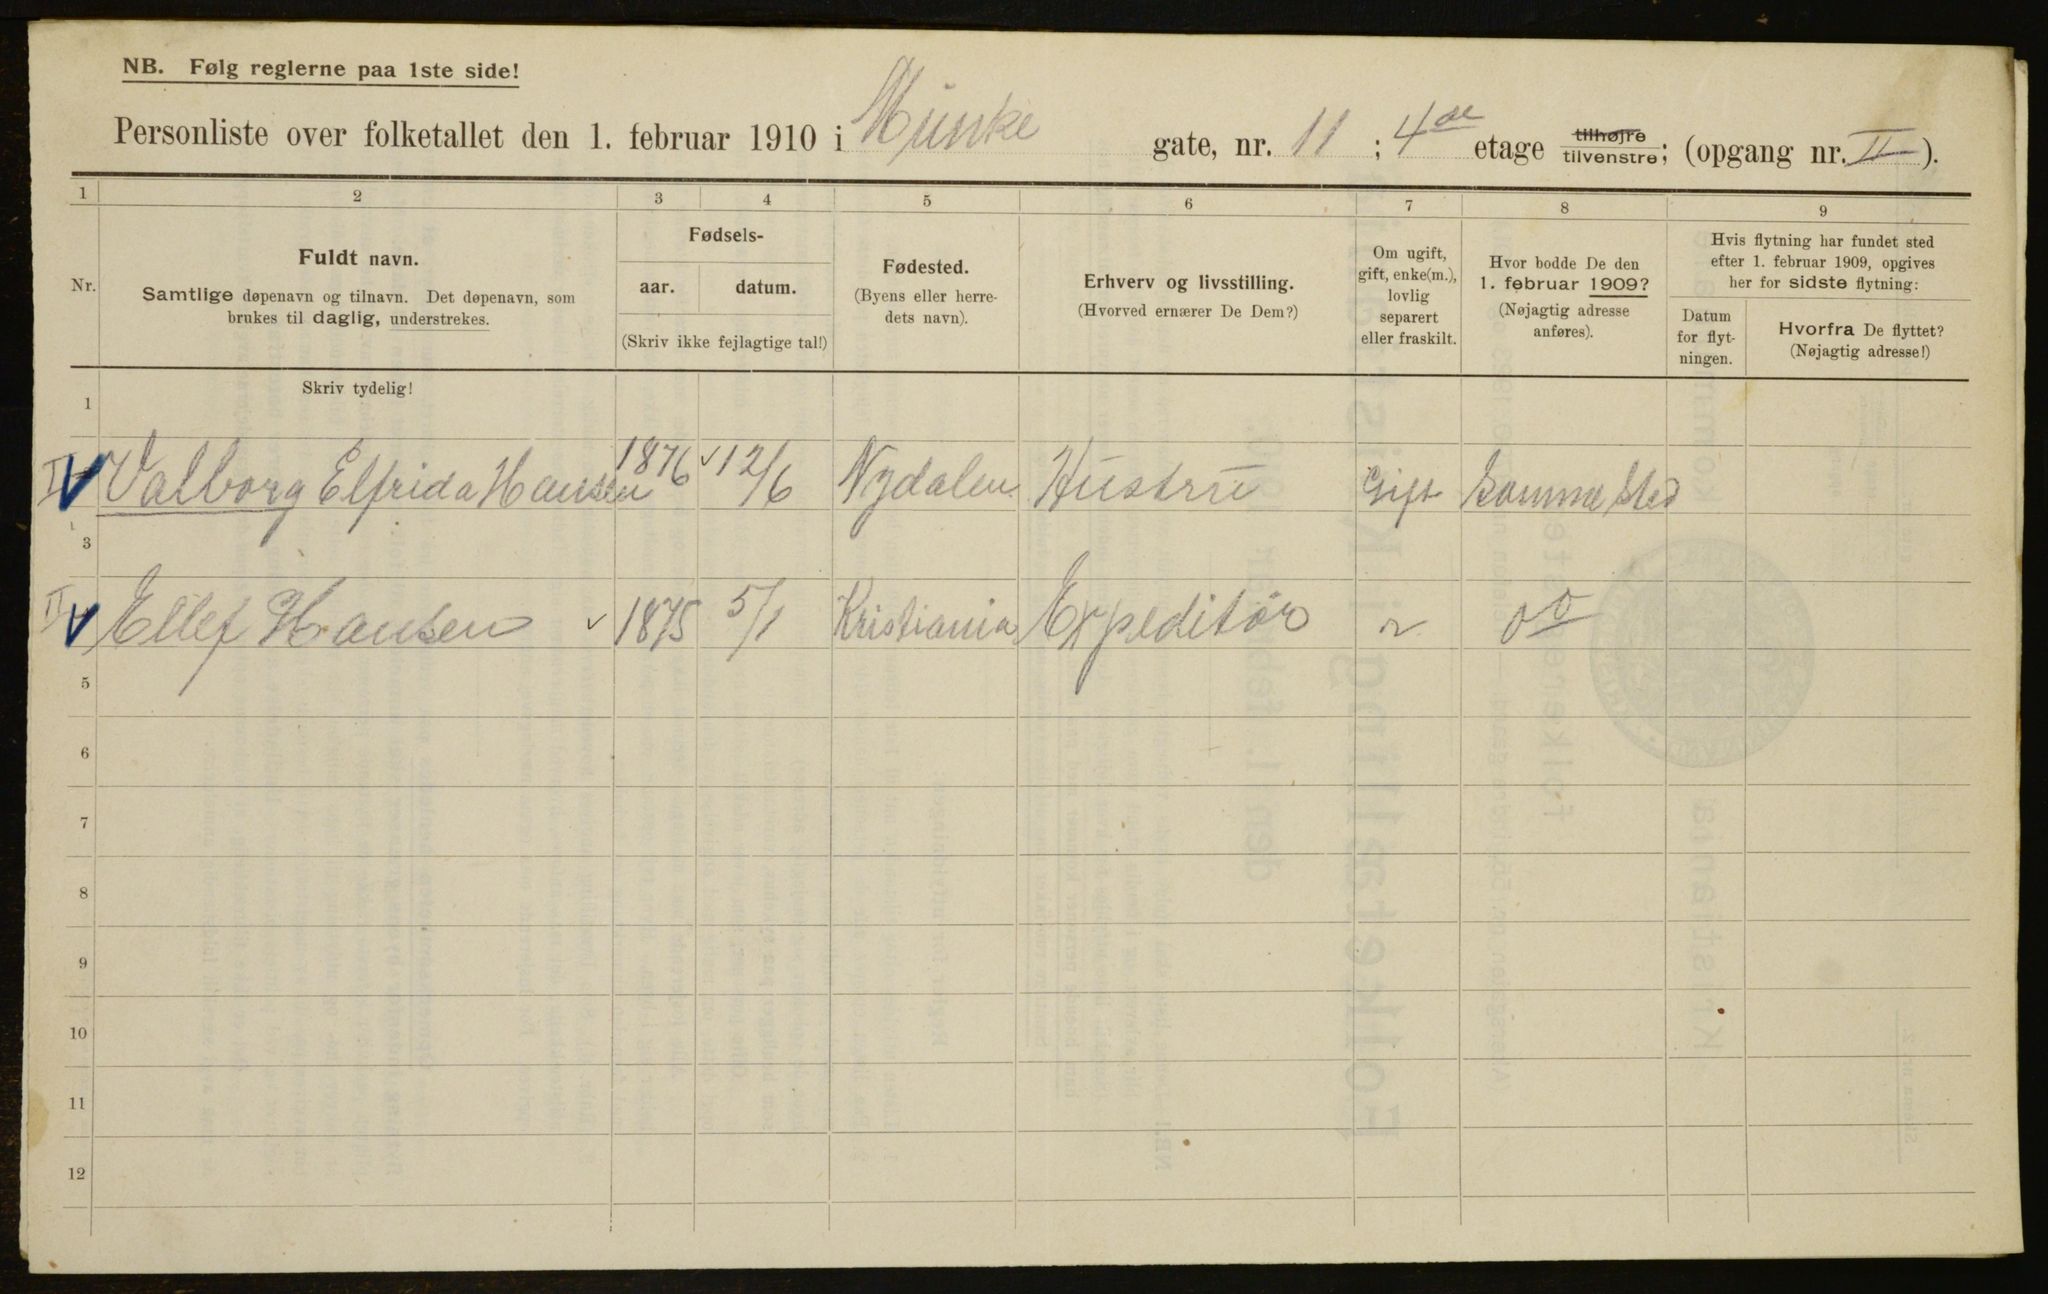 NB. Følg reglerne paa 1ste side!
Personliste over folketallet den 1. februar 1910 i Munke gate, nr. 11; 4de etage tilhøjre tilvenstre; (opgang nr. II).
1 2 3 4 5 6 7 8 9
Nr.
Fuldt navn.
Samtlige døpenavn og tilnavn. Det døpenavn, som
brukes til daglig, understrekes.
Fødsels-
aar. datum.
(Skriv ikke fejlagtige tal!)
Fødested.
(Byens eller herre-
dets navn).
Erhverv og livsstilling.
(Hvorved ernærer De Dem?)
Om ugift,
gift, enke(m.),
lovlig
separert
eller fraskilt.
Hvor bodde De den
1. februar 1909?
(Nøjagtig adresse
anføres).
Hvis flytning har fundet sted
efter 1. februar 1909, opgives
her for sidste flytning:
Datum
for flyt-
ningen.
Hvorfra De flyttet?
(Nøjagtig adresse!)
Skriv tydelig!
1
Valborg Elfrida Hansen 1876 12/6 Nydalen Hustru Gift Samme Sted
3
II Ellef Hansen 1875 5/1 Kristiania Expeditør " do
5
6
7
8
9
10
11
12